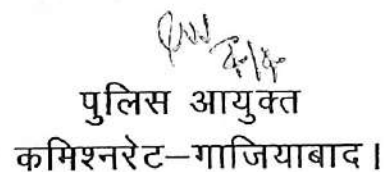 पुलिस आयुक्त
कमिश्नरेट–गाजियाबाद।